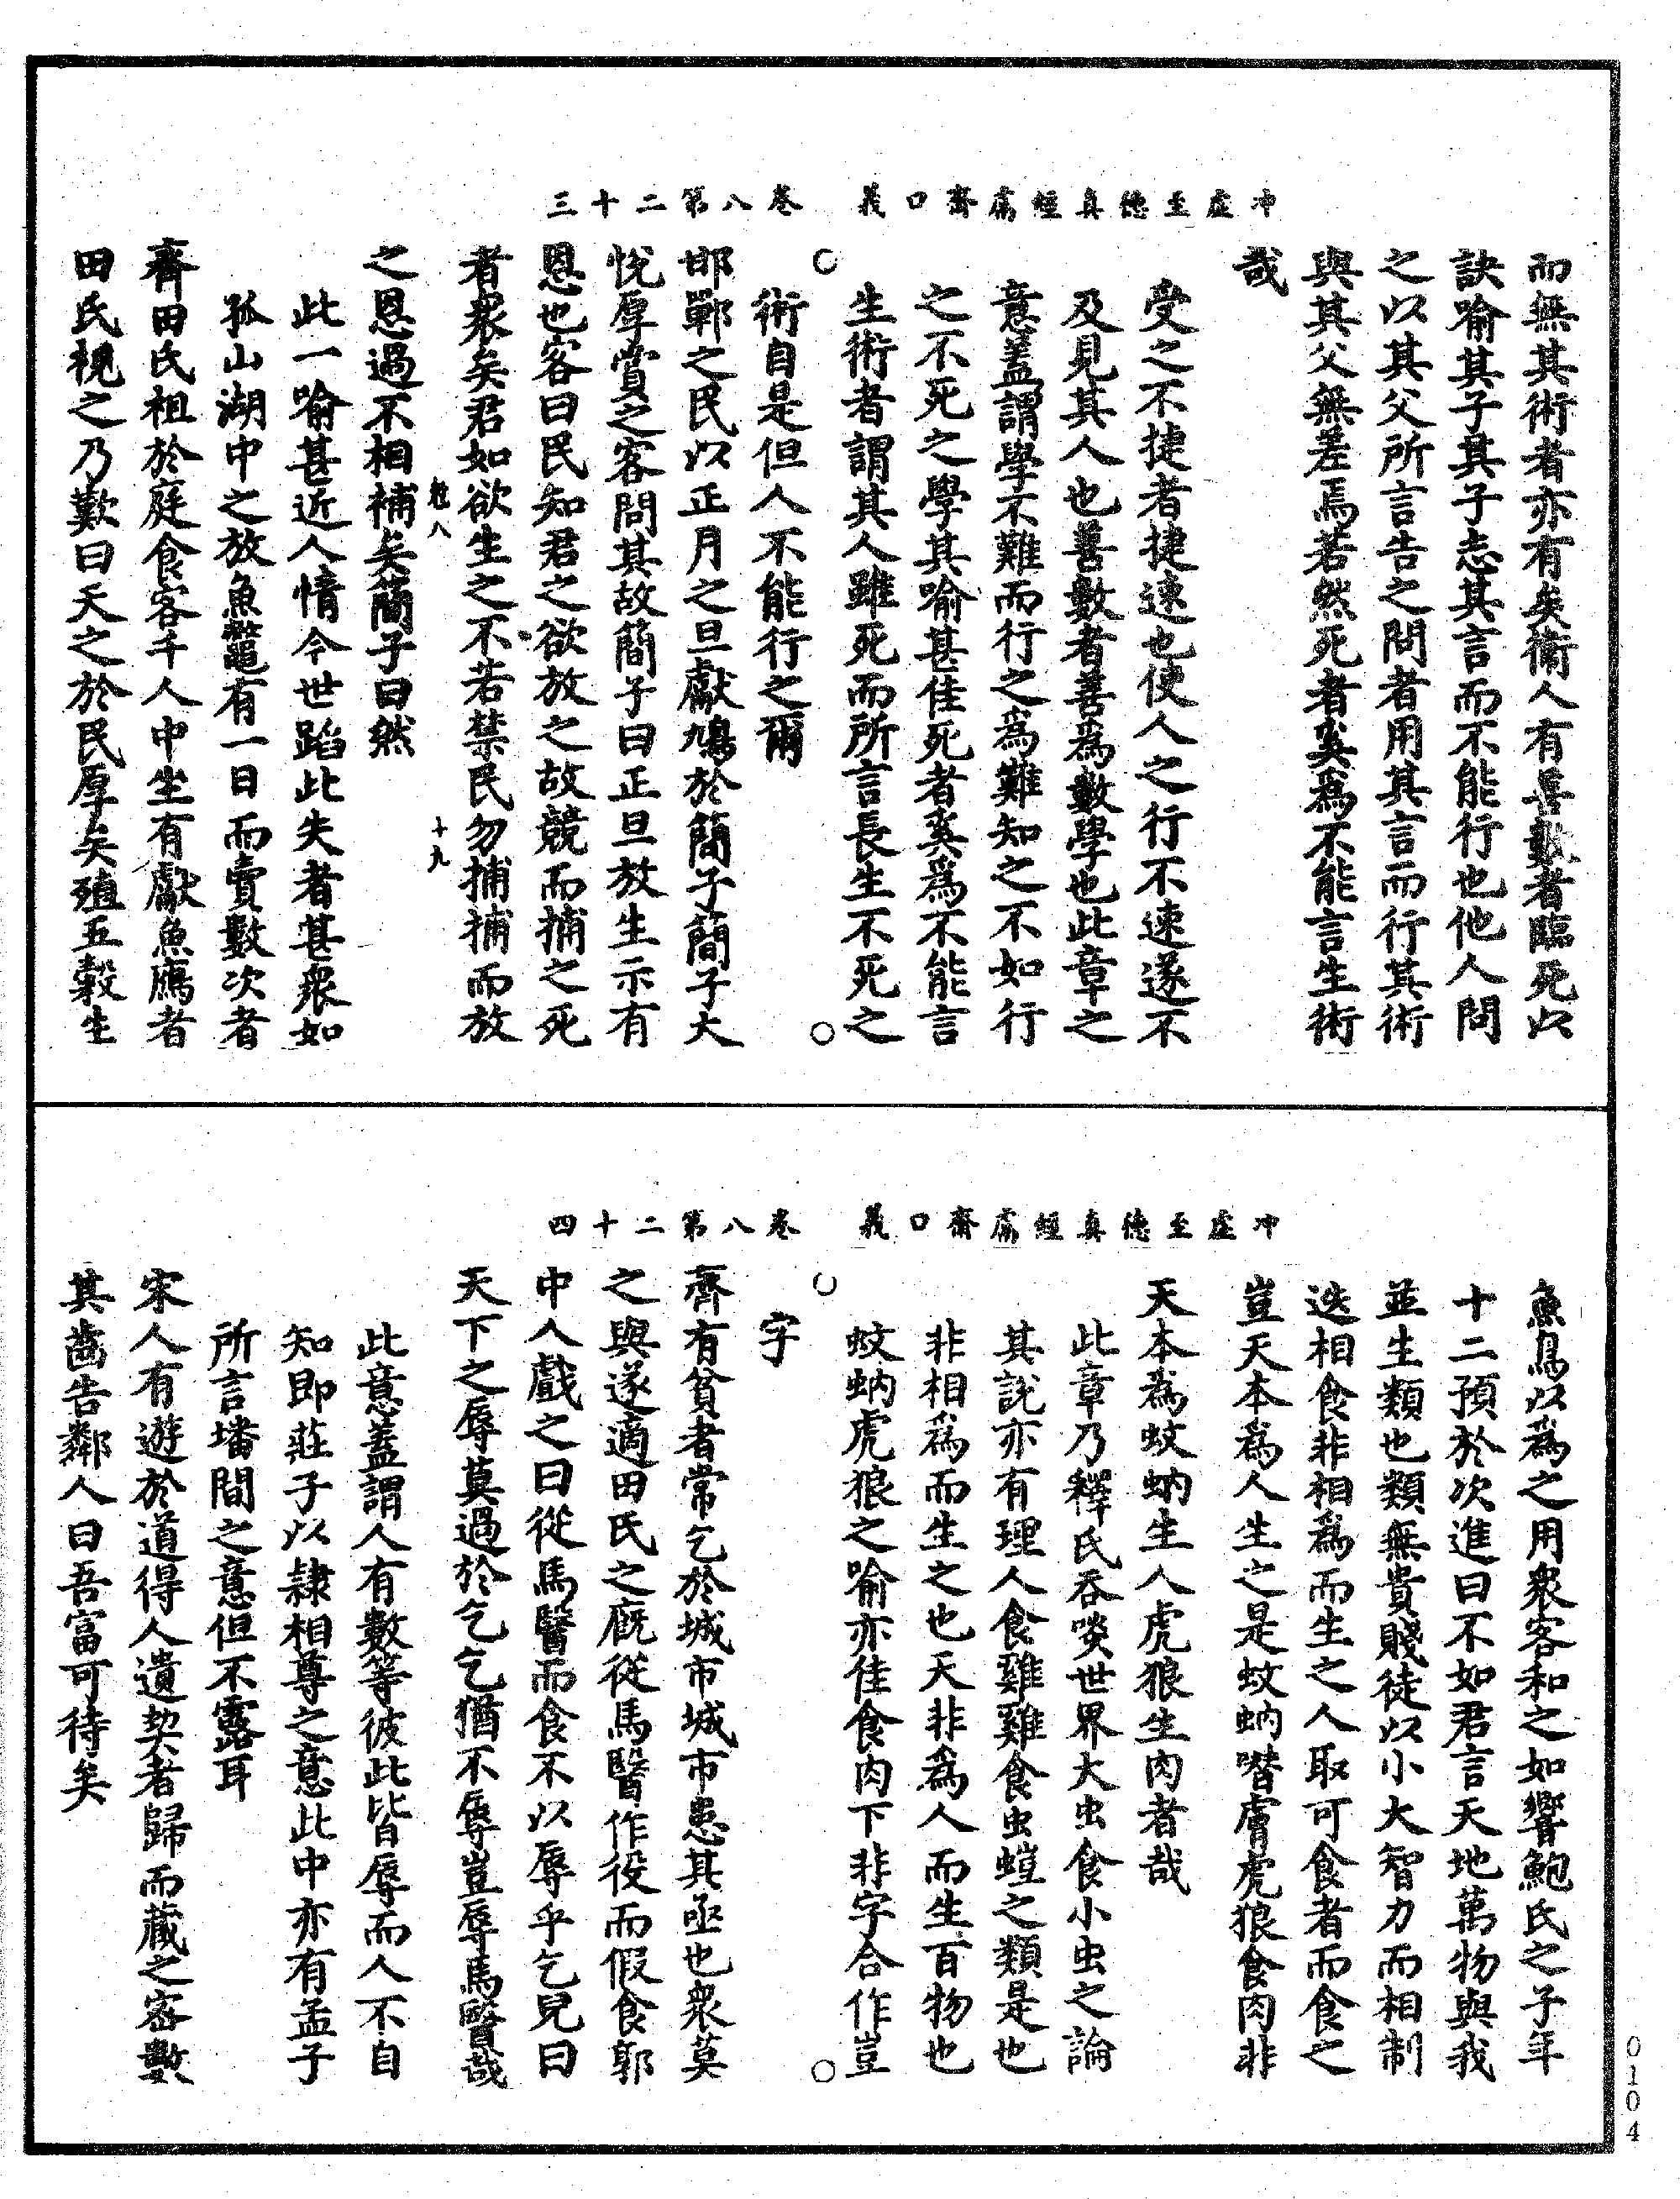 冲虛至德真經鬳齋口義　卷八第二十三
而無其術者亦有矣衞人有善數者臨死以
訣喻其子其子志其言而不能行也他人問
之以其父所言告之問者用其言而行其術
與其父無差焉若然死者奚爲不能言生術
哉
受之不捷者捷速也使人之行不速遂不
及見其人也善數者善爲數學也此章之
意蓋謂學不難而行之爲難知之不如行
之不死之學其喻甚佳死者奚爲不能言
生術者謂其人雖死而所言長生不死之
術自是但人不能行之爾
邯鄲之民以正月之旦獻鳩於簡子簡子大
悅厚賞之客問其故簡子曰正旦放生示有
恩也客曰民知君之欲放之故競而捕之死
者衆矣君如欲生之不若禁民勿捕捕而放
之恩過不相補矣簡子曰然
此一喻甚近人情今世蹈此失者甚衆如
孤山湖中之放魚鼈有一日而賣數次者
齊田氏祖於庭食客千人中坐有獻魚鴈者
田氏視之乃歎曰天之於民厚矣殖五穀生
冲虛至德真經鬳齋口義　卷八第二十四
魚鳥以爲之用衆客和之如響鮑氏之子年
十二預於次進曰不如君言天地萬物與我
並生類也類無貴賤徒以小大智力而相制
迭相食非相爲而生之人取可食者而食之
豈天本爲人生之是蚊蚋噆膚虎狼食肉非
天本爲蚊蚋生人虎狼生肉者哉
此章乃釋氏吞啖世界大虫食小虫之論
其說亦有理人食雞雞食虫螘之類是也
非相爲而生之也天非爲人而生百物也
蚊蚋虎狼之喻亦佳食肉下非字合作豈
字
齊有貧者常乞於城市城市患其亟也衆莫
之與遂適田氏之廐從馬醫作役而假食郭
中人戲之曰從馬醫而食不以辱乎乞兒曰
天下之辱莫過於乞乞猶不辱豈辱馬醫哉
此意蓋謂人有數等彼此皆辱而人不自
知即莊子以隷相尊之意此中亦有孟子
所言墦間之意但不露耳
宋人有遊於道得人遺契者歸而藏之密數
其齒告鄰人曰吾富可待矣
0104